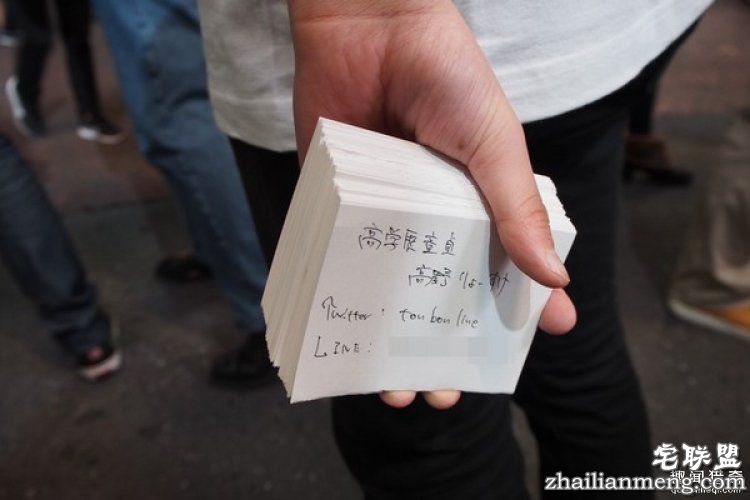 高学歴童貞
高野
Twitter: tonbonline
LINE:
宅联盟
zhailianmeng.com